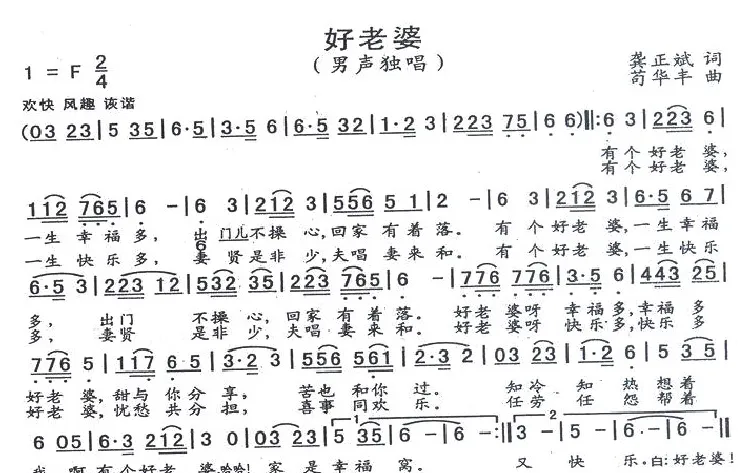 好老婆
(男声独唱)
1 = F 2/4
龚正斌 词
苟华丰 曲
欢快 风趣 诙谐
(03 23| 5 35| 6·5 |3·5 6| 6·5 32| 1·2 3| 223 75| 6 6) ‖: 6 3| 223 6|
有个好老 婆,
有个好老 婆,
112 765| 6 - | 6 3| 212 3| 556 5 1| 2 - | 6 3| 212 3| 6·5 6 7|
一生 幸福 多, 出门儿不操 心,回家 有着 落。 有个好老 婆,一生 幸福
一生 快乐 多, 妻贤是非 少,夫唱 妻来 和。 有个好老 婆,一生 快乐
6·5 3| 223 12| 532 35| 223 765| 6 - |776 776| 3·5 6| 443 25|
多, 出门 不操 心,回家 有着 落。 好老 婆呀 幸福 多,幸福 多
多, 妻贤 是非 少,夫唱 妻来 和。 好老 婆呀 快乐 多,快乐 多
776 5| 117 6·5| 3·2 3| 556 561| 2·3 2| 03 23| 1·2 6| 5 35|
好老 婆,甜与 你分 享, 苦也 和你 过。 知冷 知 热 想着
好老 婆,忧愁 共分 担, 喜事 同欢 乐。 任劳 任 怨 帮着
6 05| 6·3 212| 3 0| 03 23| 5 35| 6 - | 6 - :‖ 3 - | 5 - | 6 - | 6 - ‖
我 啊有个好老 婆哈哈! 家 是幸福 窝。 又 快 乐。白:好老婆!